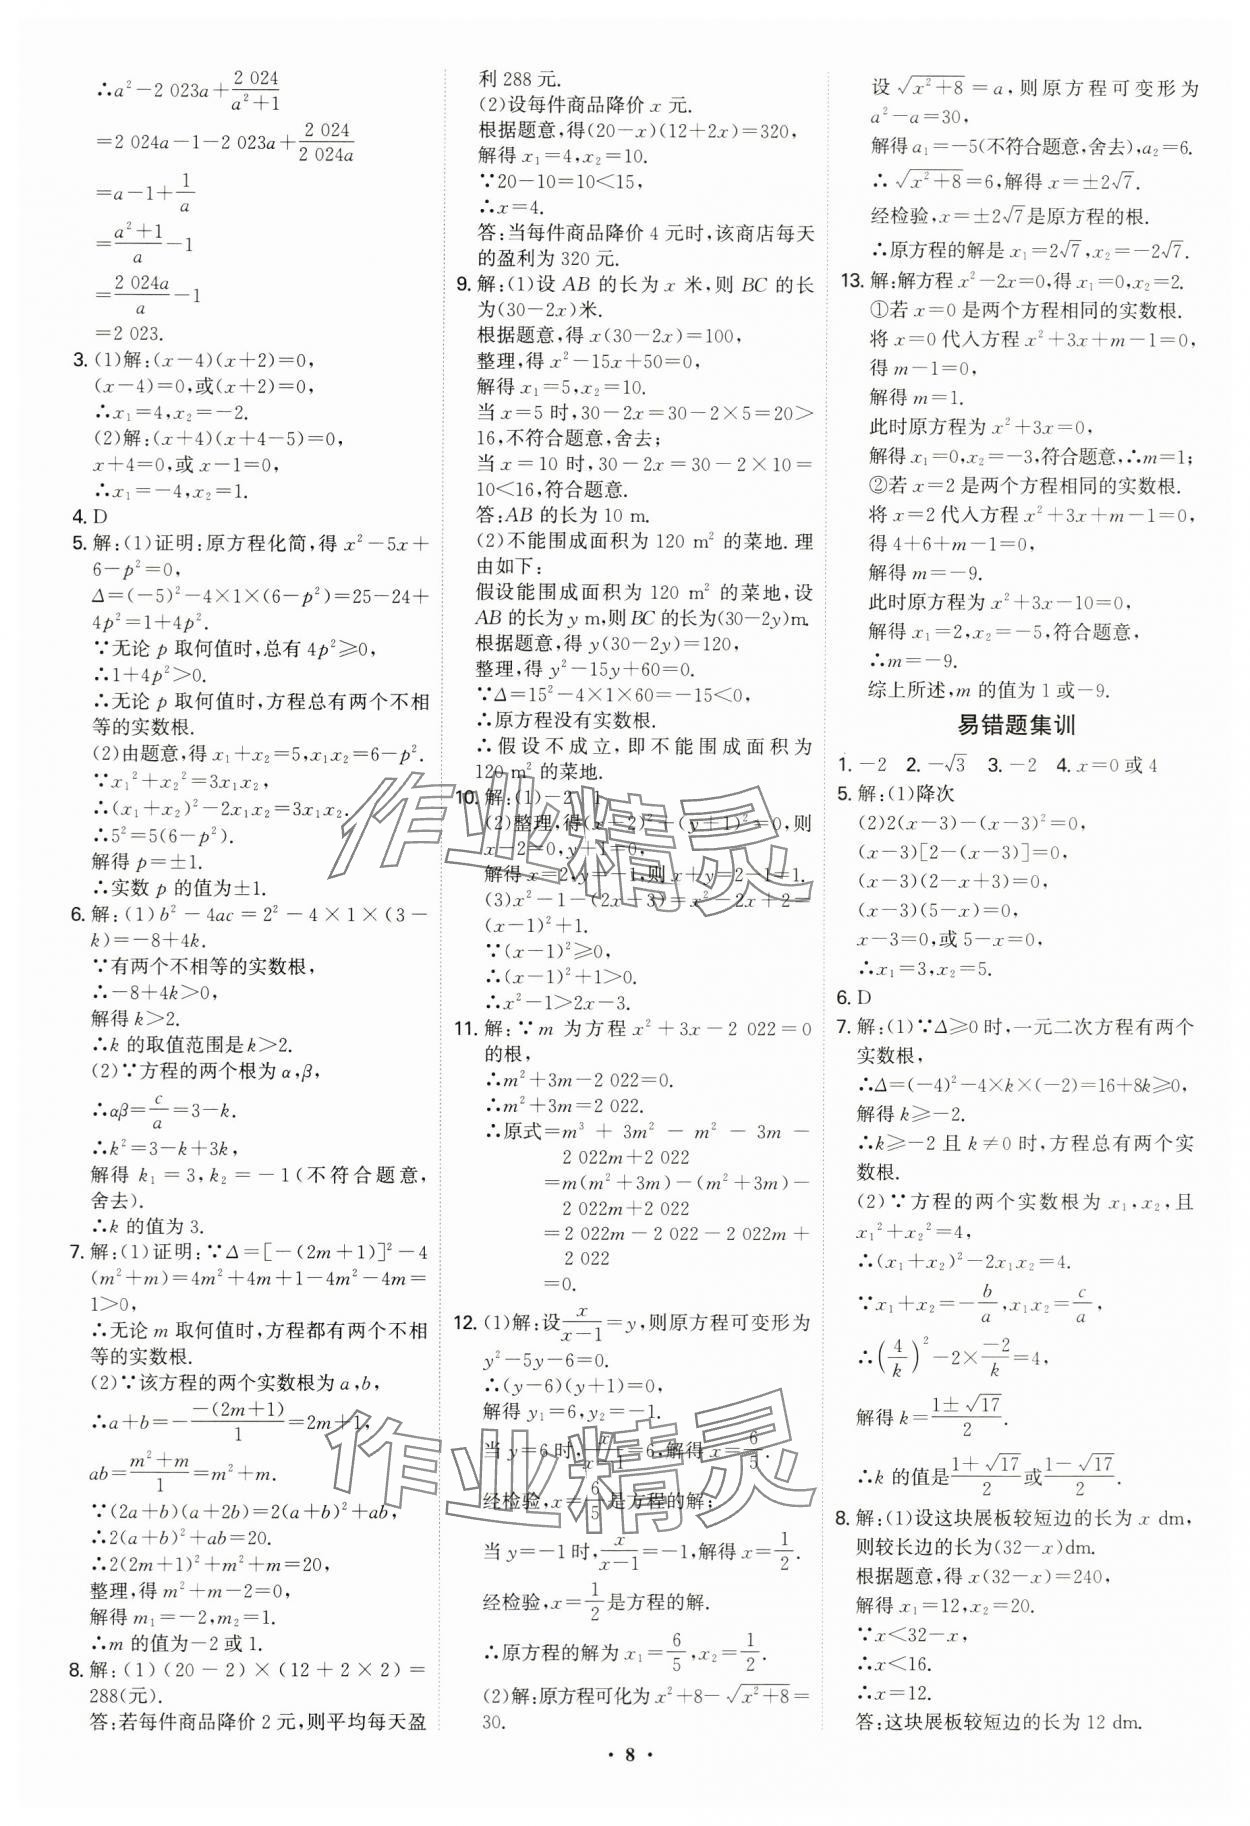 ∴a²－2 023a＋2 024/(a²＋1)
＝2 024a－1－2 023a＋2 024/(2 024a)
＝a－1＋1/a
＝(a²＋1)/a－1
＝2 024a/a－1
＝2 023.
3. (1)解:(x－4)(x＋2)＝0,
(x－4)＝0,或(x＋2)＝0,
∴x₁＝4,x₂＝－2.
(2)解:(x＋4)(x＋4－5)＝0,
x＋4＝0,或 x－1＝0,
∴x₁＝－4,x₂＝1.
4. D
5. 解:(1)证明:原方程化简,得 x²－5x＋
6－p²＝0,
Δ＝(－5)²－4×1×(6－p²)＝25－24＋
4p²＝1＋4p².
∵无论 p 取何值时,总有 4p²⩾0,
∴1＋4p²>0.
∴无论 p 取何值时,方程总有两个不相
等的实数根.
(2)由题意,得 x₁＋x₂＝5,x₁x₂＝6－p².
∵x₁²＋x₂²＝3x₁x₂,
∴(x₁＋x₂)²－2x₁x₂＝3x₁x₂.
∴5²＝5(6－p²).
解得 p＝±1.
∴实数 p 的值为±1.
6. 解:(1)b²－4ac＝2²－4×1×(3－
k)＝－8＋4k.
∵有两个不相等的实数根,
∴－8＋4k>0,
解得 k>2.
∴k 的取值范围是 k>2.
(2)∵方程的两个根为 α,β,
∴αβ＝c/a＝3－k.
∴k²＝3－k＋3k,
解得 k₁＝3,k₂＝－1(不符合题意,
舍去).
∴k 的值为 3.
7. 解:(1)证明:∵Δ＝[－(2m＋1)]²－4
(m²＋m)＝4m²＋4m＋1－4m²－4m＝
1>0,
∴无论 m 取何值时,方程都有两个不相
等的实数根.
(2)∵该方程的两个实数根为 a,b,
∴a＋b＝－－(2m＋1)/1＝2m＋1,
ab＝(m²＋m)/1＝m²＋m.
∵(2a＋b)(a＋2b)＝2(a＋b)²＋ab,
∴2(a＋b)²＋ab＝20.
∴2(2m＋1)²＋m²＋m＝20,
整理,得 m²＋m－2＝0,
解得 m₁＝－2,m₂＝1.
∴m 的值为－2 或 1.
8. 解:(1)(20－2)×(12＋2×2)＝
288(元).
答:若每件商品降价 2 元,则平均每天盈
利 288 元.
(2)设每件商品降价 x 元.
根据题意,得(20－x)(12＋2x)＝320,
解得 x₁＝4,x₂＝10.
∵20－10＝10<15,
∴x＝4.
答:当每件商品降价 4 元时,该商店每天
的盈利为 320 元.
9. 解:(1)设 AB 的长为 x 米,则 BC 的长
为(30－2x)米.
根据题意,得 x(30－2x)＝100,
整理,得 x²－15x＋50＝0,
解得 x₁＝5,x₂＝10.
当 x＝5 时,30－2x＝30－2×5＝20>
16,不符合题意,舍去;
当 x＝10 时,30－2x＝30－2×10＝
10<16,符合题意.
答:AB 的长为 10 m.
(2)不能围成面积为 120 m² 的菜地.理
由如下:
假设能围成面积为 120 m² 的菜地,设
AB 的长为 y m,则 BC 的长为(30－2y)m.
根据题意,得 y(30－2y)＝120,
整理,得 y²－15y＋60＝0.
∵Δ＝15²－4×1×60＝－15<0,
∴原方程没有实数根.
∴假设不成立,即不能围成面积为
120 m² 的菜地.
10. 解:(1)－2 1
(2)整理,得(x－2)²－(y＋1)²＝0,则
x－2＝0,y＋1＝0,
解得 x＝2,y＝－1,则 x＋y＝2－1＝1.
(3)x²－1－(2x＋3)＝x²－2x＋2＝
(x－1)²＋1.
∵(x－1)²⩾0,
∴(x－1)²＋1>0.
∴x²－1>2x－3.
11. 解:∵m 为方程 x²＋3x－2 022＝0
的根,
∴m²＋3m－2 022＝0.
∴m²＋3m＝2 022.
∴原式＝m³＋3m²－m²－3m－
2 022m＋2 022
＝m(m²＋3m)－(m²＋3m)－
2 022m＋2 022
＝2 022m－2 022－2 022m＋
2 022
＝0.
12. (1)解:设x/(x－1)＝y,则原方程可变形为
y²－5y－6＝0.
∴(y－6)(y＋1)＝0,
解得 y₁＝6,y₂＝－1.
当 y＝6 时,x/(x－1)＝6,解得 x＝6/5.
经检验,x＝6/5是方程的解;
当 y＝－1 时,x/(x－1)＝－1,解得 x＝1/2.
经检验,x＝1/2是方程的解.
∴原方程的解为 x₁＝6/5,x₂＝1/2.
(2)解:原方程可化为 x²＋8－√(x²＋8)＝
30.
设√(x²＋8)＝a,则原方程可变形为
a²－a＝30,
解得 a₁＝－5(不符合题意,舍去),a₂＝6.
∴√(x²＋8)＝6,解得 x＝±2√7.
经检验,x＝±2√7是原方程的根.
∴原方程的解是 x₁＝2√7,x₂＝－2√7.
13. 解:解方程 x²－2x＝0,得 x₁＝0,x₂＝2.
①若 x＝0 是两个方程相同的实数根.
将 x＝0 代入方程 x²＋3x＋m－1＝0,
得 m－1＝0,
解得 m＝1.
此时原方程为 x²＋3x＝0,
解得 x₁＝0,x₂＝－3,符合题意,∴m＝1;
②若 x＝2 是两个方程相同的实数根.
将 x＝2 代入方程 x²＋3x＋m－1＝0,
得 4＋6＋m－1＝0,
解得 m＝－9.
此时原方程为 x²＋3x－10＝0,
解得 x₁＝2,x₂＝－5,符合题意,
∴m＝－9.
综上所述,m 的值为 1 或－9.
易错题集训
1. －2 2. －√3 3. －2 4. x＝0 或 4
5. 解:(1)降次
(2)2(x－3)－(x－3)²＝0,
(x－3)[2－(x－3)]＝0,
(x－3)(2－x＋3)＝0,
(x－3)(5－x)＝0,
x－3＝0,或 5－x＝0,
∴x₁＝3,x₂＝5.
6. D
7. 解:(1)∵Δ⩾0 时,一元二次方程有两个
实数根,
∴Δ＝(－4)²－4×k×(－2)＝16＋8k⩾0,
解得 k⩾－2.
∴k⩾－2 且 k≠0 时,方程总有两个实
数根.
(2)∵方程的两个实数根为 x₁,x₂,且
x₁²＋x₂²＝4,
∴(x₁＋x₂)²－2x₁x₂＝4.
∵x₁＋x₂＝－b/a,x₁x₂＝c/a,
∴(4/k)²－2×－2/k＝4,
解得 k＝(1±√17)/2.
∴k 的值是(1＋√17)/2或(1－√17)/2.
8. 解:(1)设这块展板较短边的长为 x dm,
则较长边的长为(32－x)dm.
根据题意,得 x(32－x)＝240,
解得 x₁＝12,x₂＝20.
∵x<32－x,
∴x<16.
∴x＝12.
答:这块展板较短边的长为 12 dm.
· 8 ·
作业精灵
作业精灵